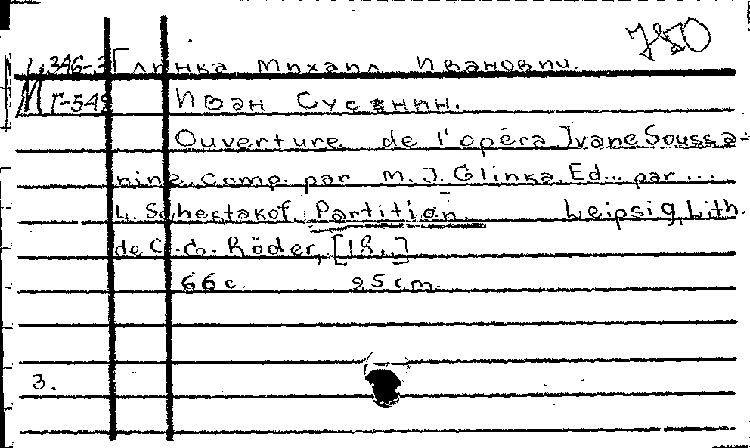 750
М 346-3 Глинка Михаил Иванович.
Г-549 Иван Сусанин.
Ouverture de l'opéra Ivane Soussa-
nine, comp. par M. J. Glinka. Ed... par...
L. Schestakof. Partition. Leipsig, Lith.
de C. G. Röder, [18..]
66 c. 25 cm.
3.